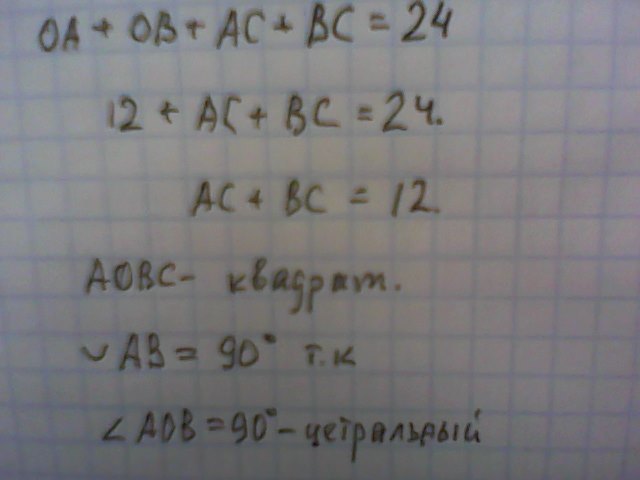 OA + OB + AC + BC = 24
12 + AC + BC = 24.
AC + BC = 12.
AOBC - квадрат.
◡ AB = 90° т.к
∠ AOB = 90° - цетральный